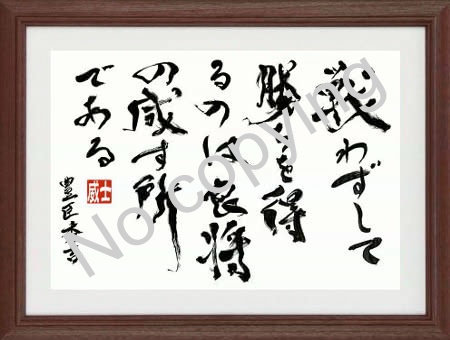 戦わずして
勝ちを得
るのは良将
の成す所
である
豊臣秀吉
威士
No copying